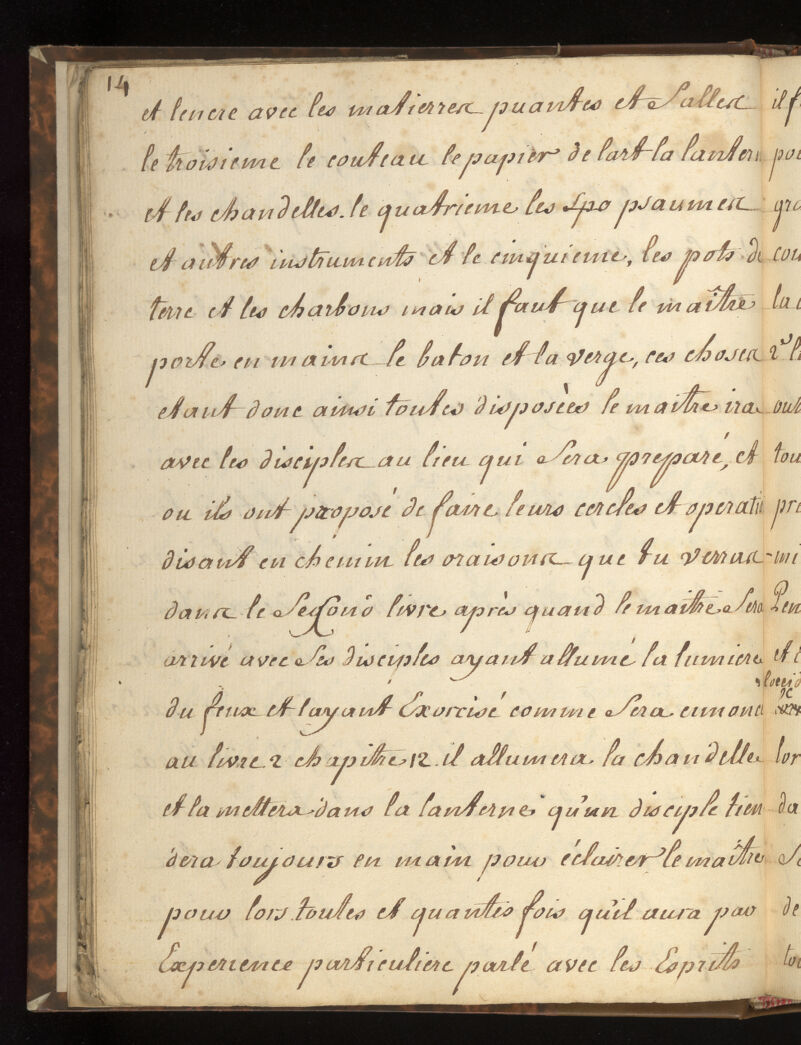 14
et lencre avec les matierres puantes et Salles
le troisieme le couteau le papier de lart la lantern
et les chandelles. le quatrieme les psaumes
et autres instruments et le cinquieme, les pots de
terre et les charbons mais il faut que le maître
porte en mains le baton et la verge, ces choses
etant donc ainsi toutes disposèes le maitre ira
avec les disciples au lieu qui Sera preparé, et
ou ils ont proposé de faire leurs cercles et operati
disant en chemin les oraisons que tu verras
dans le Second livre après quand le maitre Sera
arrivé avec Ses disciples ayant allumé la lumiere
du feux et layant Exorcisé comme Sera ennoncé
au livre 2 chapitre 12. il allumera la chandelle
et la mettera dans la lanterne qu'un disciple tien
dera toujours en main pour éclairer le maître
pour lors toutes et quantes fois qu'il aura par
Experience particuliere parlé avec les Esprits